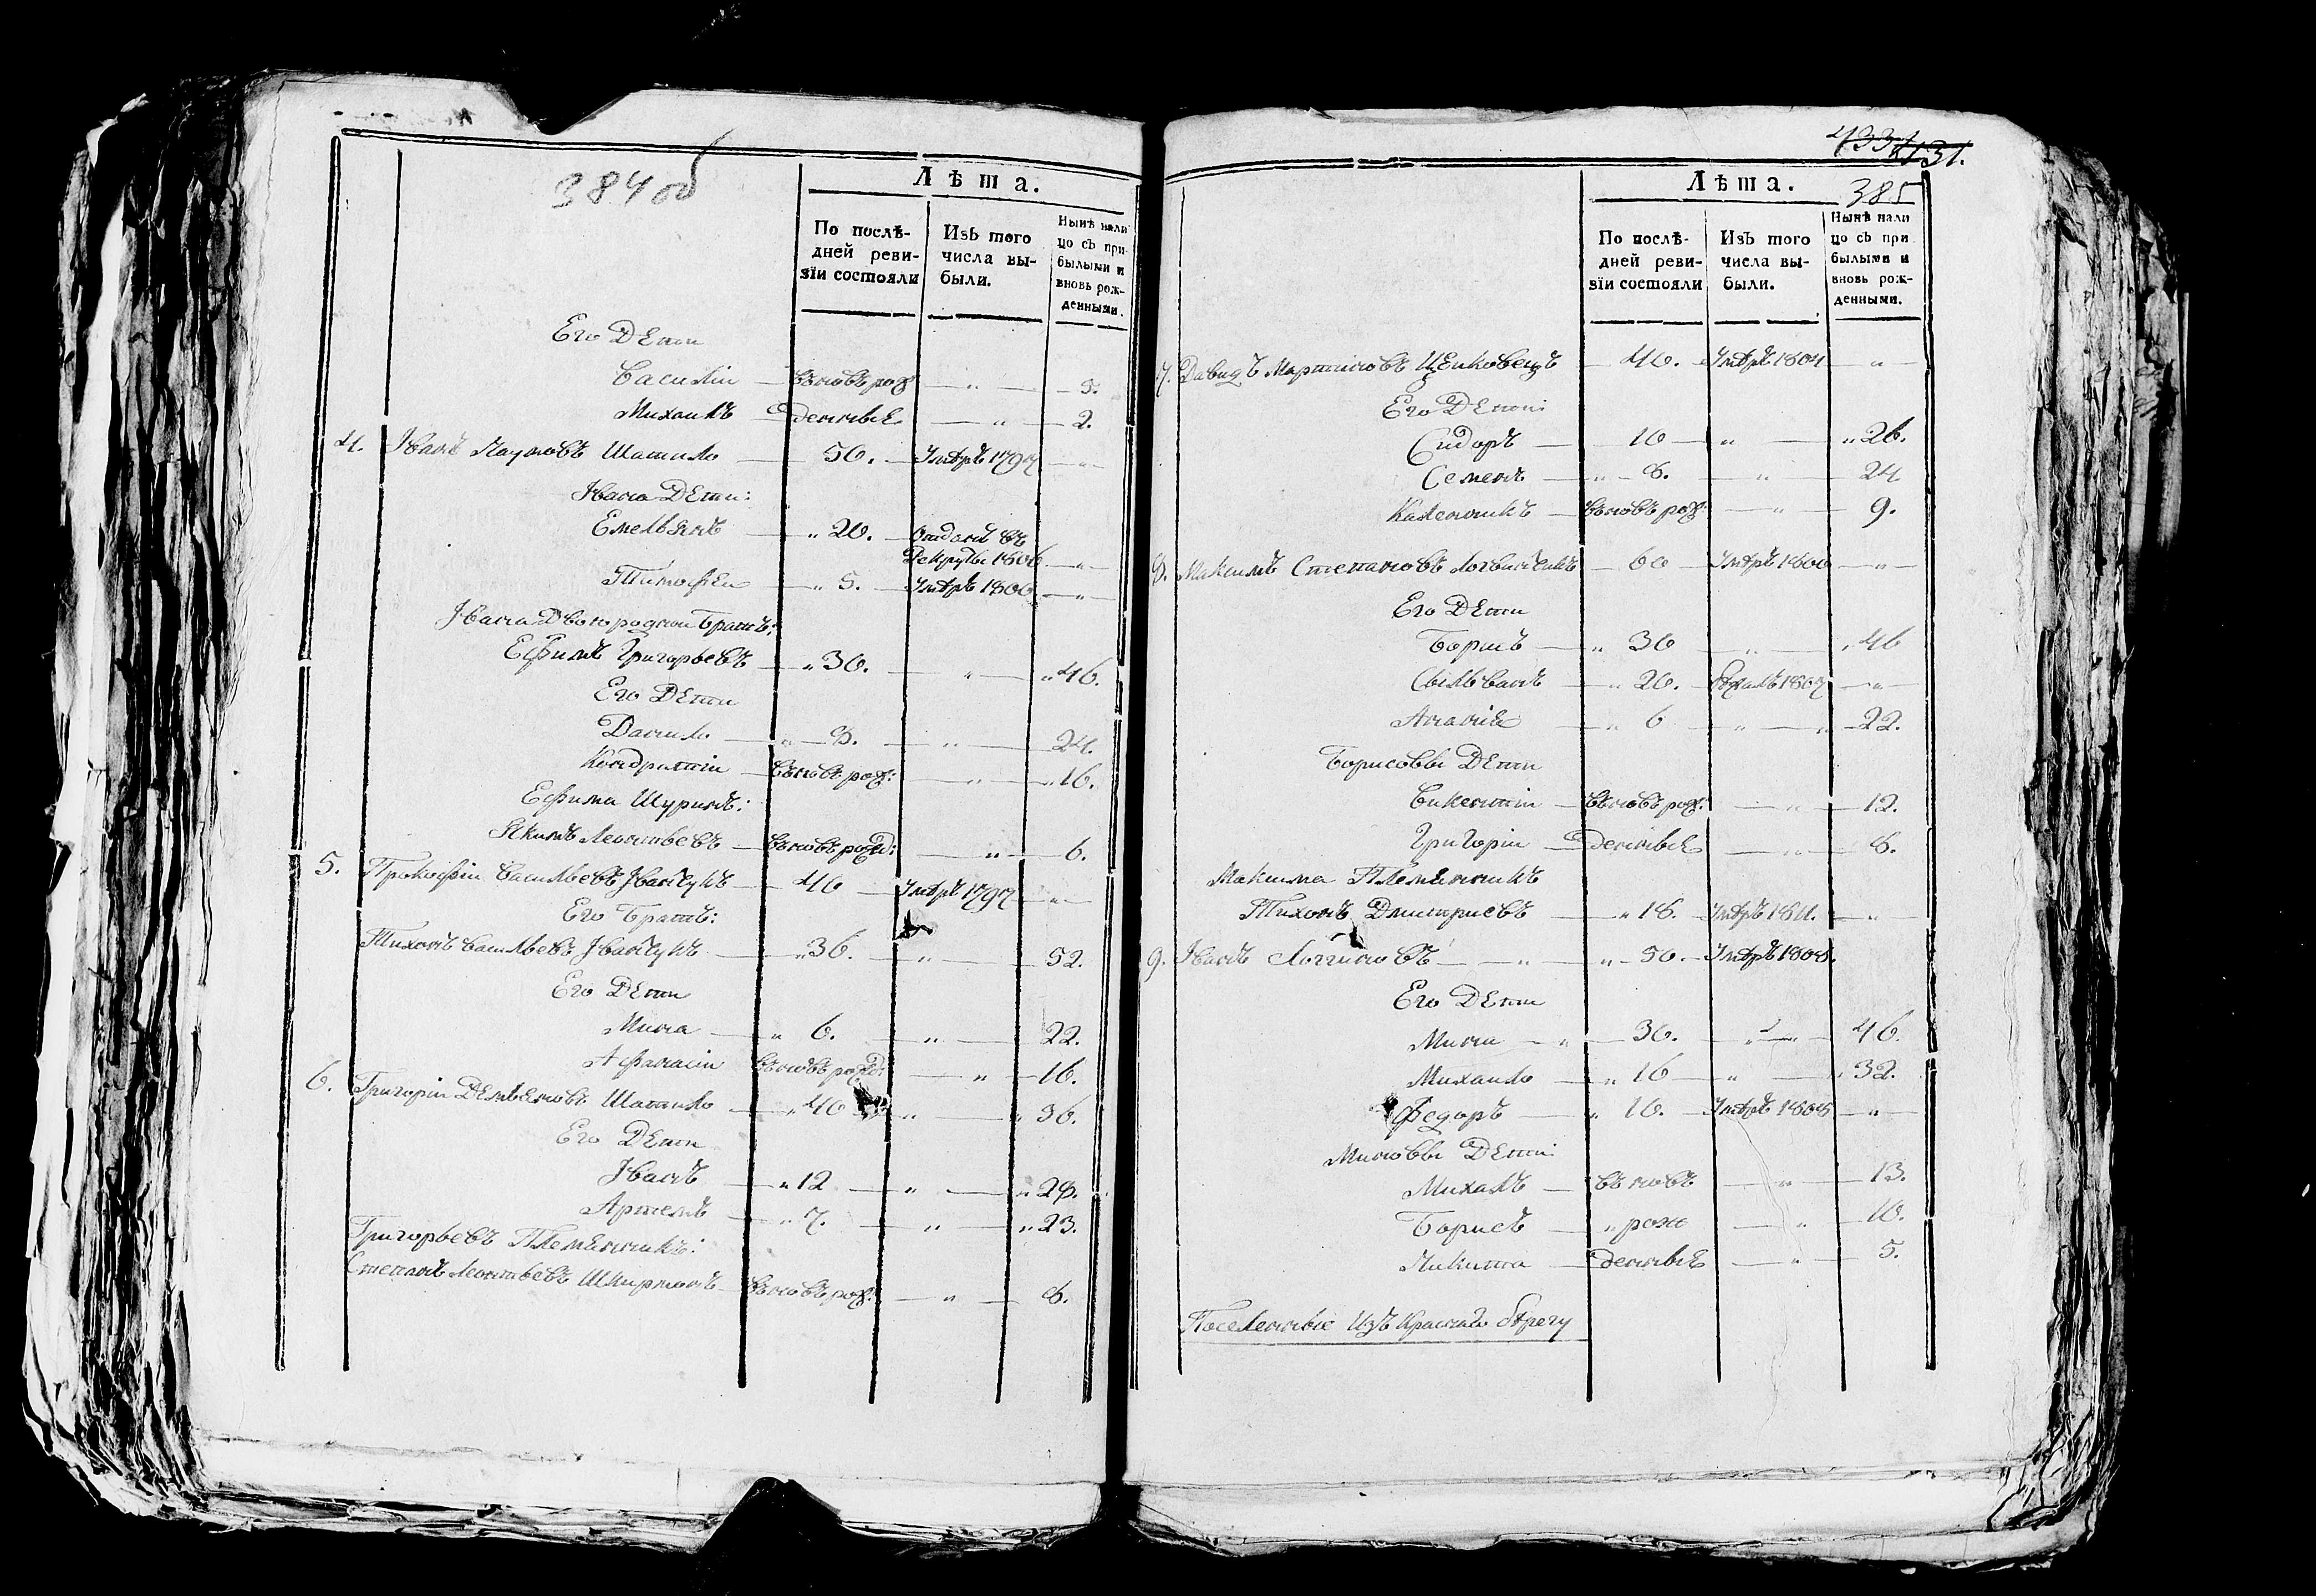 384 об
Лѣта.
По послѣ-
дней реви-
зіи состояли
Изъ того
числа вы-
были.
Нынѣ нали
цо съ при-
былыми и
вновь рож-
денными.
Его Дети
Василіи вновь рож — „ — 3.
Михаилъ денные — „ — 2.
4. Іванъ Наумовъ Шатило — 50. — Умѣръ 1797 — „
Івана Дети:
Емельянъ — „ 20. — отданъ въ
Рекруты 1806 — „
Тимофеи — „ 5. — Умѣръ 1800 — „
Івана Двоюродной Братъ:
Ефимъ Григорьевъ — „ 30. — „ — „ 46.
Его Дети
Данило — „ 8. — „ — 24.
Кондратіи — вновь рож: — „ — „ 16.
Ефима Шуринъ:
Якимъ Леонтьевъ — вновь рожд: — „ — 6.
5. Прокофіи Васильевъ — 46 — Умѣръ 1797 — „
Его Братъ:
Тихонъ Васильевъ — „ 36. — „ — 52.
Его Дети
Мина — „ 6. — „ — 22.
Афанасіи вновь рожд: — „ — 16.
6. Григоріи Дементьевъ Шатило — „ 40 — „ — „ 56.
Его Дети
Іванъ — „ 12 — „ — „ 28.
Артемъ — „ 7. — „ — „ 23.
Григорьевъ Племянникъ:
Степанъ Леонтьевъ — вновь рож: — „ — 8.
433 431.
385
Лѣта.
По послѣ-
дней реви-
зіи состояли
Изъ того
числа вы-
были.
Нынѣ нали
цо съ при
былыми и
вновь рож-
денными.
7. Давидъ Мартиновъ — 46. — Умѣръ 1804 — „
Его Дети:
Сидоръ — 10 — „ — „ 26.
Семенъ — „ 8. — „ — 24
Каленникъ — вновь рож: — „ — 9.
8. Максимъ Степановъ — 60 — Умѣръ 1800 — „
Его Дети
Борисъ — „ 30 — „ — „ 46
Сильванъ — „ 20. — бѣжалъ 1807 — „
Ананіе — „ 6 — „ — „ 22.
Борисовы Дети
Викентіи — вновь рож: — „ — 12.
Григоріи — денные — „ — 8.
Максима Племянникъ
Тихонъ Дмитриевъ — „ 18. — Умѣръ 1811. — „
9. Іванъ Логгиновъ — „ — „ 50. — Умѣръ 1808.
Его Дети
Мина — „ — 30. — „ — 46.
Михаило — „ 16 — „ — „ 32.
Федоръ — „ 10. — Умѣръ 1808 — „
Миновы Дети:
Михалъ — вновь — „ — 13.
Борисъ — „ рож — „ — 10.
Никита — денные — „ — 5.
Поселенные Изъ Краснаго бѣрегу